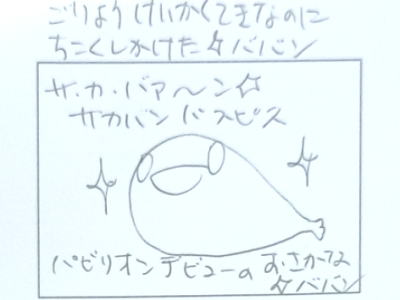 ごりようけいかくてきなのに
ちこくしかけた☆ババン
サ・カ・バァ〜ン☆
サカバンバスピス
パビリオンデビューの おさかな
☆ババン